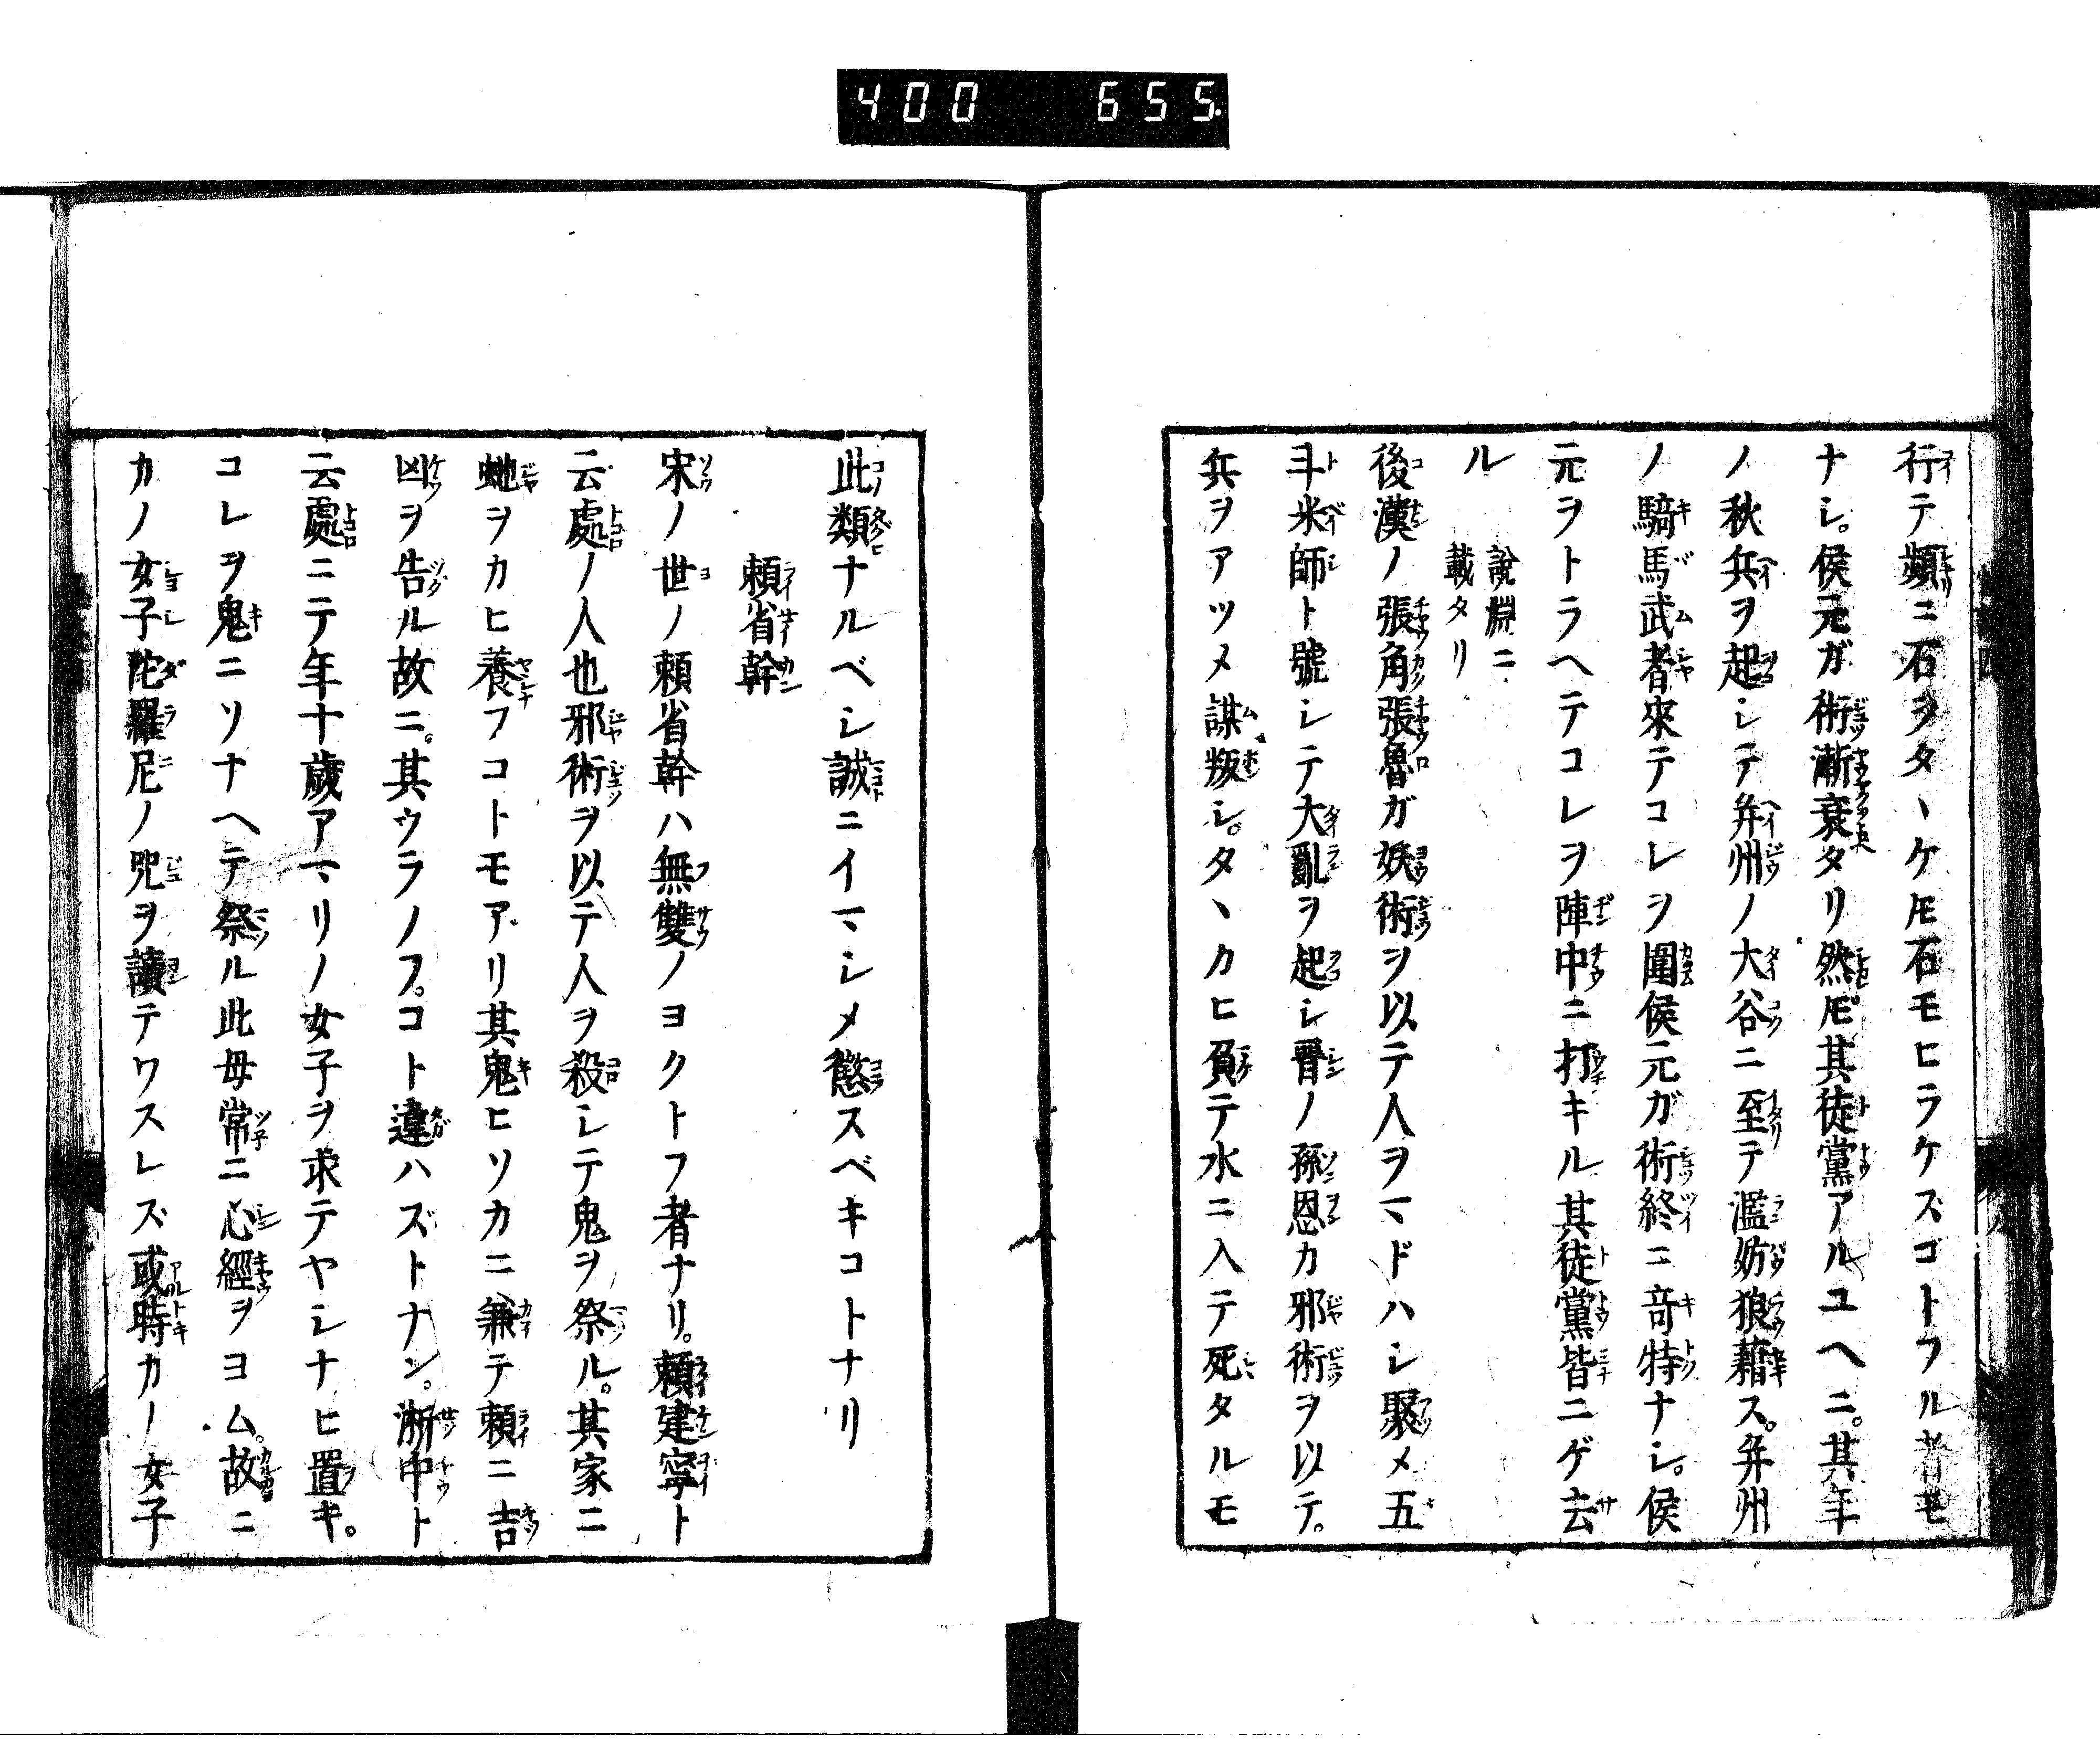 400 655
行テ頻ニ石ヲタヽケ𪜈石モヒラケズコトフル者モ
ナシ。侯元ガ術漸衰タリ然𪜈其徒黨アルユヘニ。其年
ノ秋兵ヲ起シテ弁州ノ大谷ニ至テ濫妨狼藉ス。弁州
ノ騎馬武者來テコレヲ圍侯元ガ術終ニ竒特ナシ。侯
元ヲトラヘテコレヲ陣中ニ打キル其徒黨皆ニゲ去
ル
說淵ニ
載タリ
後漢ノ張角張魯ガ妖術ヲ以テ人ヲマドハシ聚メ五
斗米師ト號シテ大亂ヲ起シ晋ノ孫恩カ邪術ヲ以テ。
兵ヲアツメ謀叛シ。タヽカヒ負テ水ニ入テ死タルモ
此類ナルベシ誠ニイマシメ慾スベキコトナリ
頼省幹
宋ノ世ノ頼省幹ハ無雙ノヨクトフ者ナリ。頼建寧ト
云處ノ人也邪術ヲ以テ人ヲ殺シテ鬼ヲ祭ル。其家ニ
虵ヲカヒ養フコトモアリ其鬼ヒソカニ兼テ頼ニ吉
凶ヲ告ル故ニ。其ウラノフコト違ハズトナン。淅中ト
云處ニテ年十歲アマリノ女子ヲ求テヤシナヒ置キ。
コレヲ鬼ニソナヘテ祭ル此母常ニ心經ヲヨム。故ニ
カノ女子陀羅尼ノ咒ヲ讀テワスレズ或時カノ女子